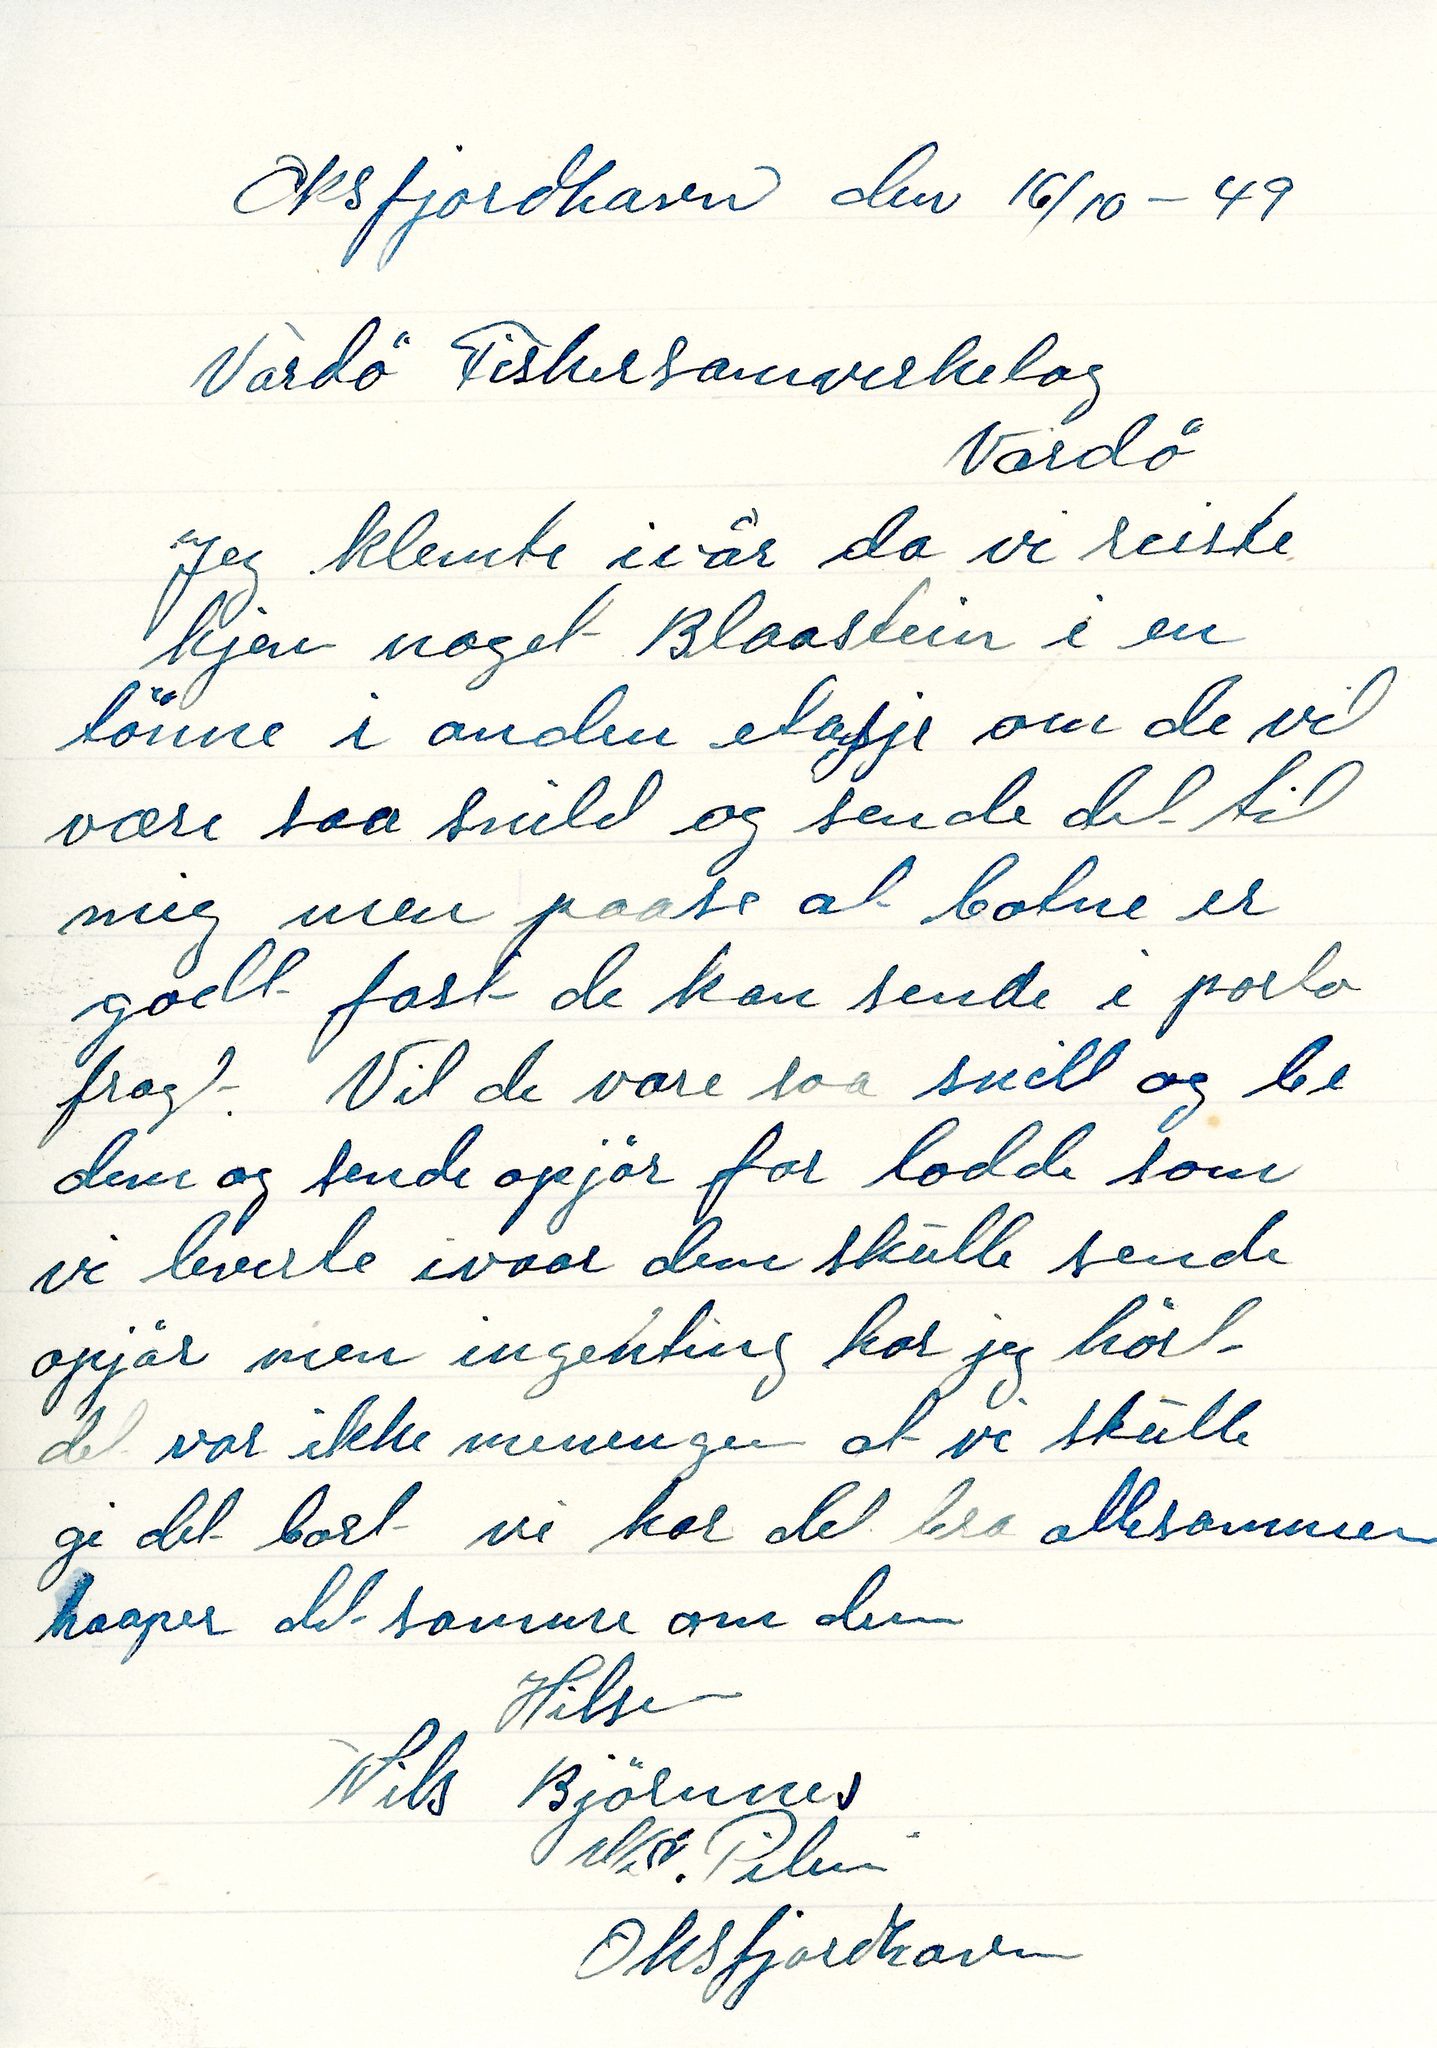 Oksfjordhavn den 16/10-49
Vardö Fiskersamverkelag
Vardö
Jeg klemte ivår da vi reiste
hjem noget Blaastein i en
tönne i anden etasje om de vil
være saa snild og sende det til
mig men paase at botne er
godt fast de kan sende i porto
fragt. Vil de være saa snill og be
dem og sende opjör for lodde som
vi leverte ivaar dem skulle sende
opjör men ingenting har jeg hört
det var ikke menengen at vi skulle
gi det bort vi har det bra allesammen
haaper det samme om dem
Hilsen
Nils Björnnes
Oksfjordhavn